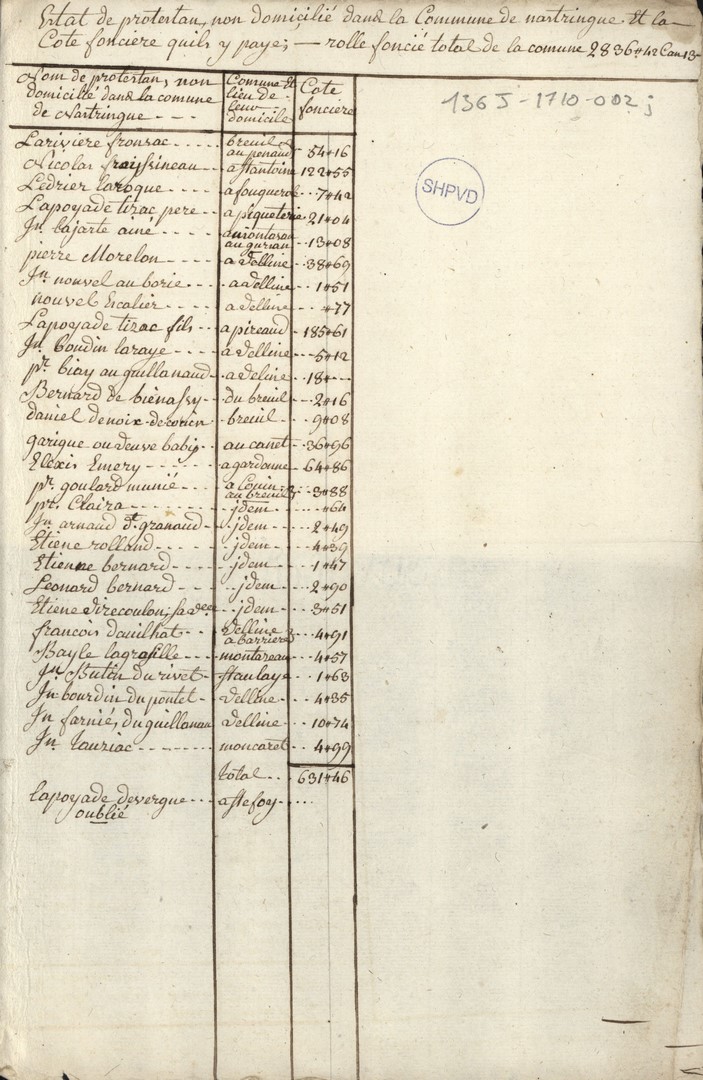 Estat de protestan, non domicilié dans la Commune de nastringue Et la
Cote fonciere quils y paye; — rolle foncié total de la comune 2836#42 Can 13
Nom de protestan, non
domicilié dans la comune
de Nastringue - - -
Comune Et
lieu de
leur
domicile
Cote
fonciere
136 J - 1710 - 002 j
SHPVD
Lariviere fronsac - - - breuil au penaud 54#16
Nicolas fraissineau - - a st antoine 122#55
Ledrier laroque - - - - a fouguerole - - 7#42
Lapoyade tizac pere - - a piqueterie 21#04
Jn lajarte ainé - - - - a montasau au gurian - - 13#08
pierre Morelon - - - - a velline - - 38#69
Jn nouvel au borie - - - a velline - - 1#51
nouvel Escalier - - - - a velline - - - #77
Lapoyade tizac fils - - - a pireaud - 185#61
Jn boudin laraye - - - - a velline - - - 5#12
pr biay au guillanaud - a veline - - 18#---
Bernard de bienassy - du breuil - - - 2#16
daniel denoix - breuil - - - 9#08
garigue ou veuve babi - - au canet - - 36#96
Elexis Emery - - - - - a gardonne - 64#86
pr goulard munié - - - au breuil - 3#88
pre Claira - - - - - - jdem - - - - #64
Jn arnaud dt granaud - - jdem - - - 2#49
Etiene rolland - - - - jdem - - - 4#39
Etienne bernard - - - - jdem - - - 1#47
Leonard bernard - - - jdem - - - 2#90
Etiene direcoulon; - - jdem - - - 3#51
francois dauilhat - - - Velline a barriere - - - 4#91
Bayle lagrasille - - - montazeau - - 4#57
Jn Butin du rivet - - st aulaye - - 1#63
Jn bourdin du pontet - Velline - - - 4#35
Jn farnié, du guillanau Velline - - - 10#74
Jn Tauziac - - - - - - - moncaret - - 4#99
total - - - 631#46
lapoyade devergne - - - a ste foy - - - -
oublié